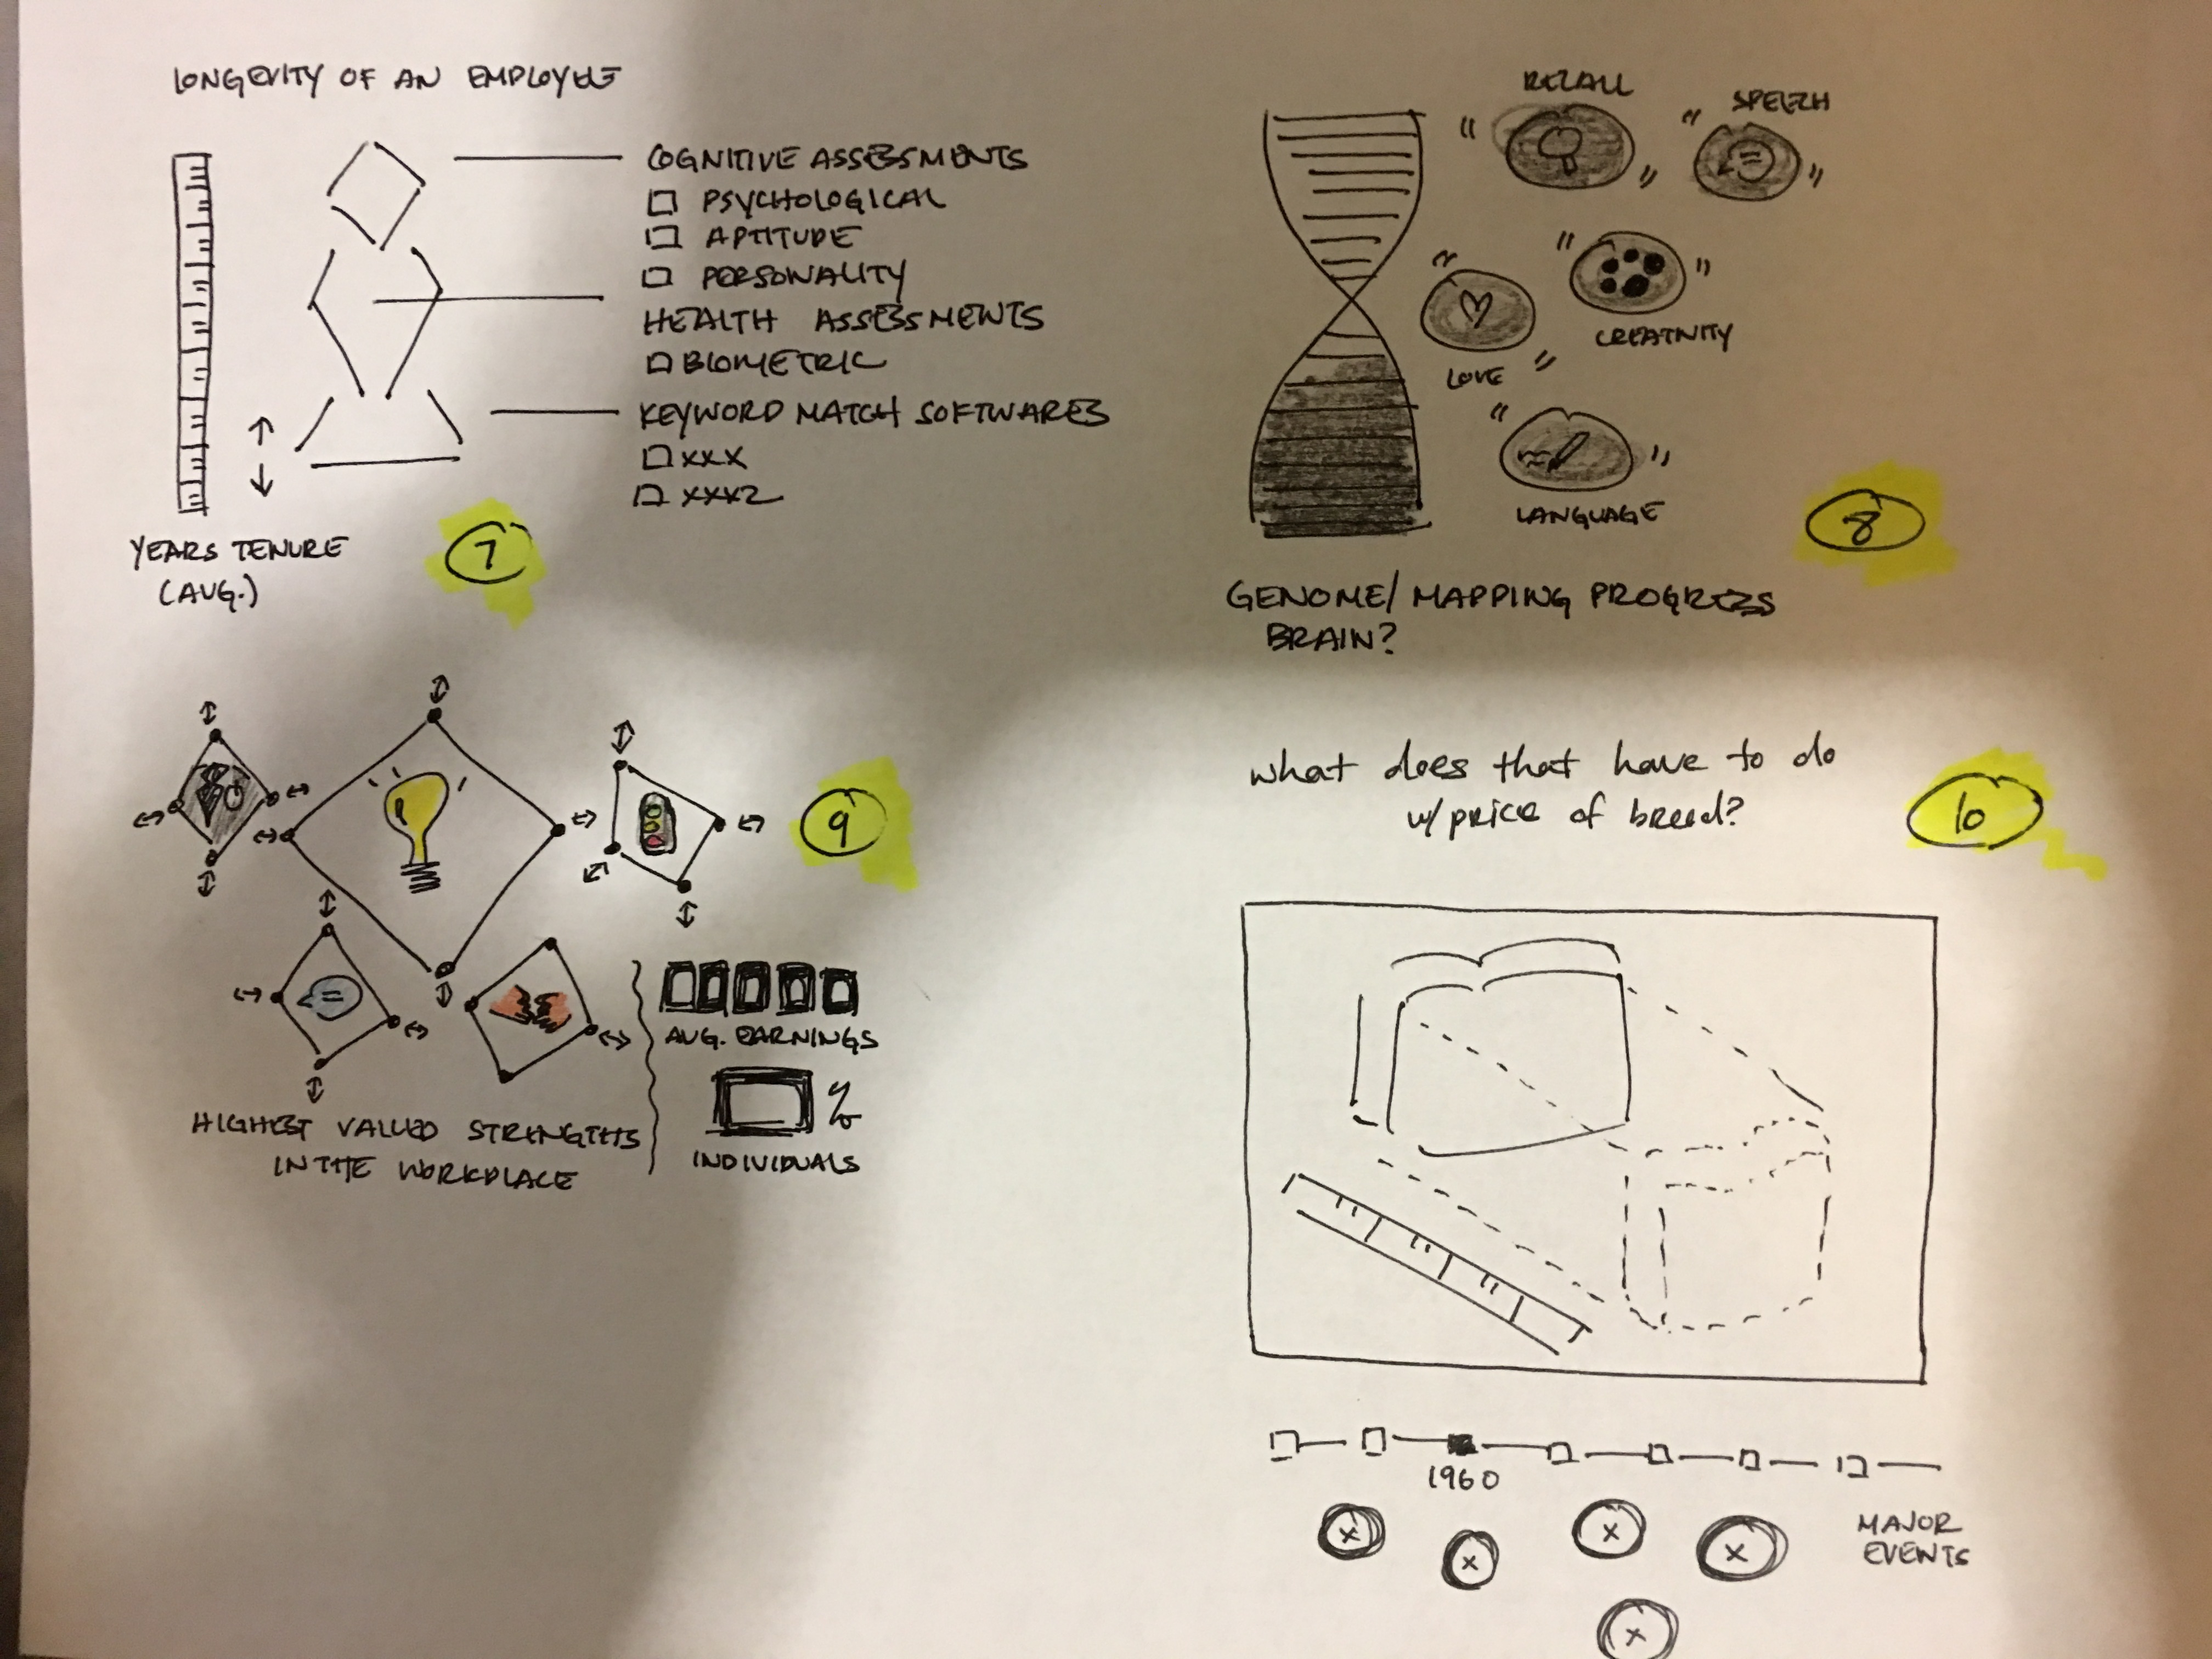 LONGEVITY OF AN EMPLOYEE
COGNITIVE ASSESSMENTS
PSYCHOLOGICAL
APTITUDE
PERSONALITY
HEALTH ASSESSMENTS
BIOMETRIC
KEYWORD MATCH SOFTWARES
XXX
XXX2
YEARS TENURE
(AVG.)
7
RECALL
SPEECH
CREATIVITY
LOVE
LANGUAGE
8
GENOME/MAPPING PROGRESS
BRAIN?
9
AVG. EARNINGS
%
INDIVIDUALS
HIGHEST VALUED STRENGTHS
IN THE WORKPLACE
what does that have to do
w/ price of bread?
10
1960
X
X
X
X
X
MAJOR
EVENTS